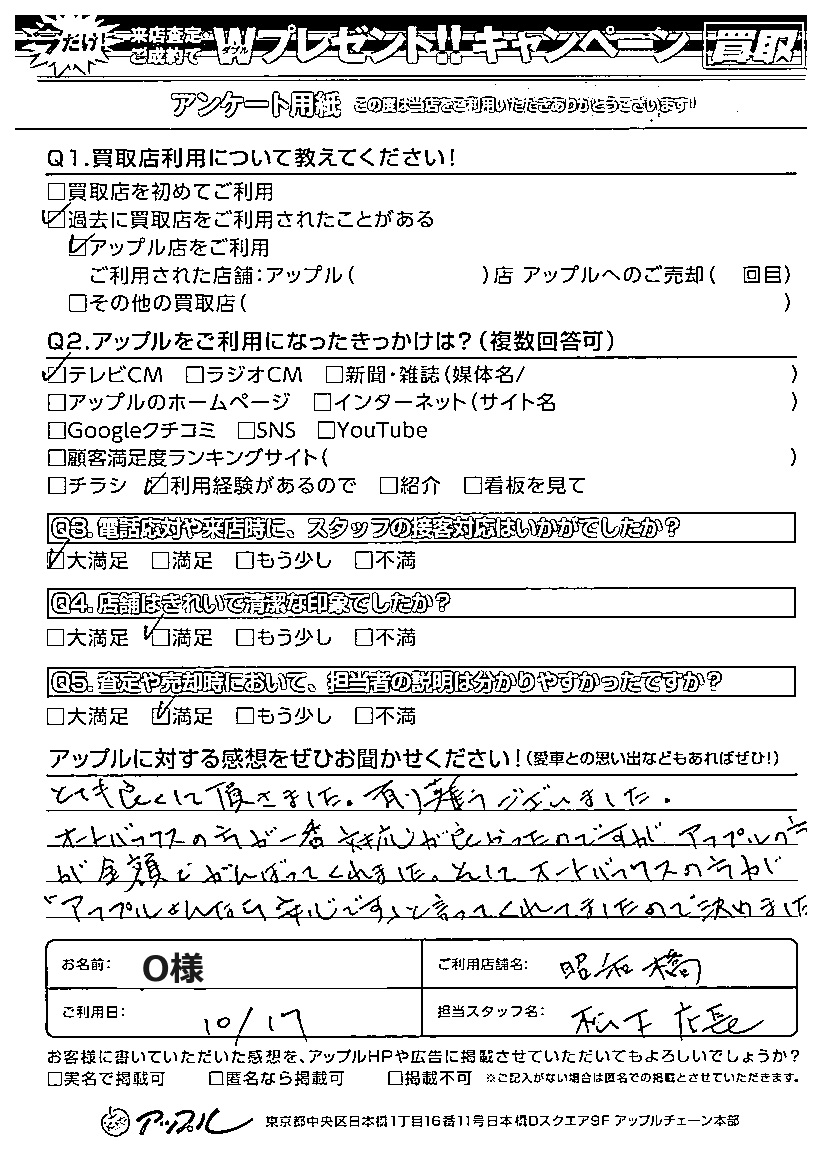 だけ! 来店査定・ご成約で Wダブルプレゼント!!キャンペーン 買取
アンケート用紙 この度は当店をご利用いただきありがとうございます!!
Q1.買取店利用について教えてください!
□買取店を初めてご利用
☑過去に買取店をご利用されたことがある
☑アップル店をご利用
ご利用された店舗:アップル( )店 アップルへのご売却( 回目)
□その他の買取店( )
Q2.アップルをご利用になったきっかけは?(複数回答可)
☑テレビCM □ラジオCM □新聞・雑誌(媒体名/ )
□アップルのホームページ □インターネット(サイト名 )
□Googleクチコミ □SNS □YouTube
□顧客満足度ランキングサイト( )
□チラシ ☑利用経験があるので □紹介 □看板を見て
Q3.電話応対や来店時に、スタッフの接客対応はいかがでしたか?
☑大満足 □満足 □もう少し □不満
Q4.店舗はきれいで清潔な印象でしたか?
□大満足 ☑満足 □もう少し □不満
Q5.査定や売却時において、担当者の説明は分かりやすかったですか?
□大満足 ☑満足 □もう少し □不満
アップルに対する感想をぜひお聞かせください!(愛車との思い出などもあればぜひ!)
とても良くして頂きました。有り難うございました。
オートバックスの方が一番対応が良かったのですが アップルの方
が金額でがんばってくれました。そして オートバックスの方が
"アップルさんなら安心です"と言ってくれてましたので決めました
お名前: O様 ご利用店舗名: 昭和橋
ご利用日: 10/17 担当スタッフ名: 松下店長
お客様に書いていただいた感想を、アップルHPや広告に掲載させていただいてもよろしいでしょうか?
□実名で掲載可 □匿名なら掲載可 □掲載不可 ※ご記入がない場合は匿名での掲載とさせていただきます。
アップル 東京都中央区日本橋1丁目16番11号日本橋Dスクエア9F アップルチェーン本部